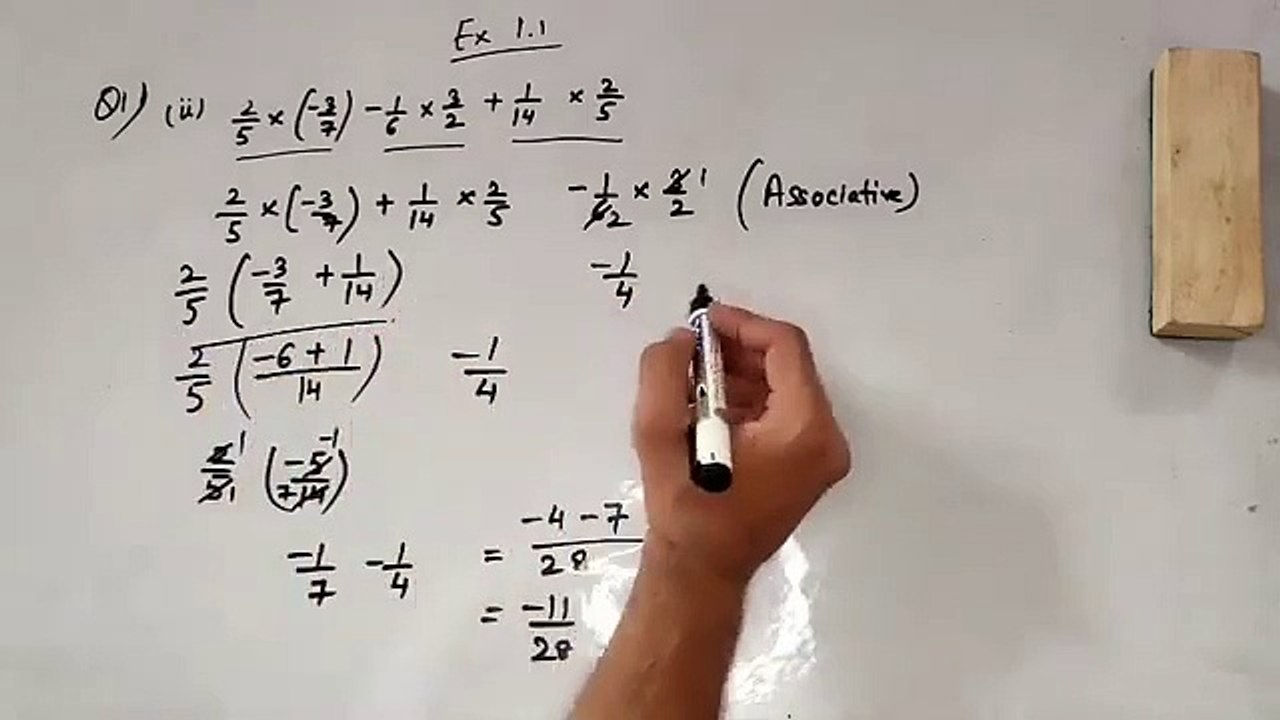 Ex 1.1
Q1) (ii) 2/5 × (-3/7) - 1/6 × 3/2 + 1/14 × 2/5
2/5 × (-3/7) + 1/14 × 2/5 - 1/62 × 3/2 1 (Associative)
2/5 (-3/7 + 1/14) -1/4
2/5 (-6 + 1/14) -1/4
2/5 1 1 (-5/14 -1 7)
-1/7 -1/4 = -4 - 7/28
= -11/28